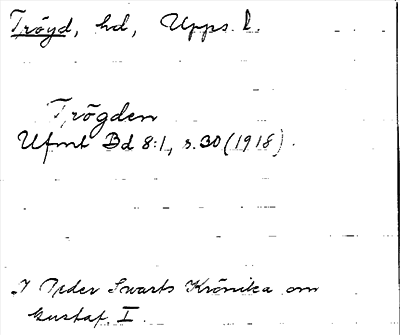 Tröyd, hd, Upps. l.
Trögden
Ufmt Bd 8:1, s. 30 (1918).
I Peder Swarts Krönika om
Gustaf I.